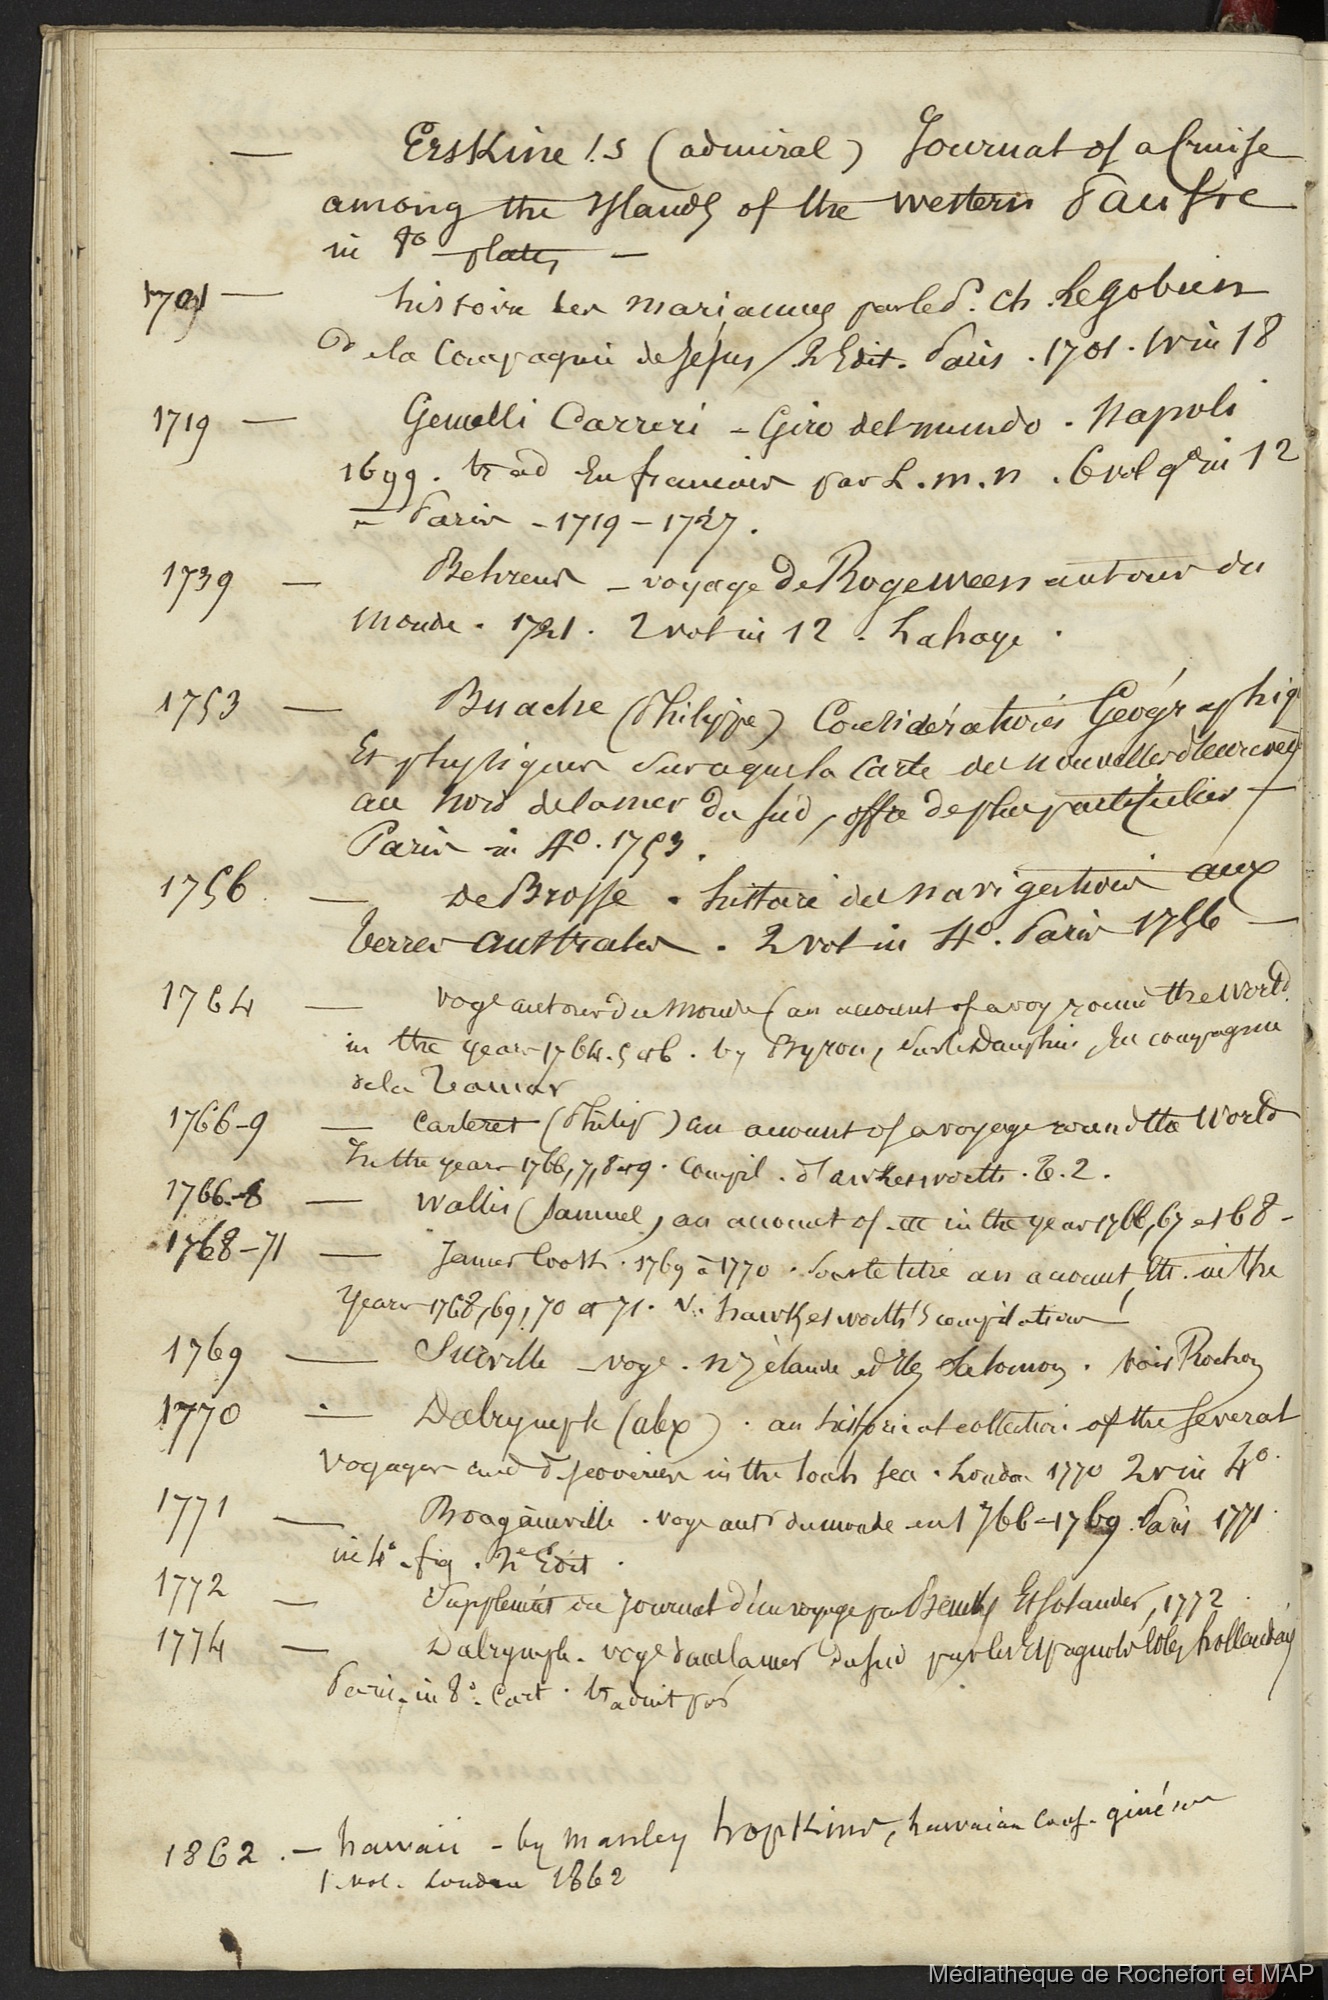 — Erskine J.S (admiral) Journal of a Cruise
among the Islands of the western Pacific
in 8° plates —
1701 — histoire des mariannes par le P. Ch. Legobien
De la Compagnie de Jésus / 2 Edit. Paris . 1701 . 1 v in 18
1719 — Gemelli Carreri – Giro del mundo . Napoli
1699 . trad En francais par L . M . N . 6 vol gd in 12
= Paris – 1719 – 1727 .
1739 — Behrens – voyage De Rogeween autour du
monde . 1721 . 2 vol in 12 . Lahaye .
1753 — Buache (Philippe) Considérations Géographiq
Et physiques sur la Carte des nouvelles découvertes
au Nord de la mer Du Sud, offre de plus particulier —
Paris in 4° . 1753 .
1756 — De Brosse . histoire des navigations aux
Terres australes . 2 vol in 4° . Paris 1756 —
1764 — voyge autour Du Monde (an account of a voy round the World
in the years 1764 . 5 et 6 . by Byron, sur le Dauphin, En compagnie
de la Tamar
1766-9 — Carteret (Philip) an account of a voyage round the World
In the years 1766, 7, 8 et 9 . Compil . d'hawkesworth . T . 2 .
1766-8 — Wallis (Samuel) an account of – etc in the year 1766, 67 et 68 –
1768-71 — James Cook . 1769 à 1770 . sous le titre an account, etc . in the
Years 1768, 69, 70 et 71 . V. hawkesworth's compilation
1769 — Surville – voyge . Nlle Zélande et Iles Salomon . voir Rochon
1770 — Dalrymple (alex) . an historical collection of the several
Voyages and discoveries in the South Sea . London 1770 2 v in 4° .
1771 — Bougainville . voyge autr du monde en 1766 – 1769 . Paris 1771 .
in 4° . fig . 2e Edit .
1772 — Supplément au Journal d'un voyage par Banks Et Solander, 1772 .
1774 — Dalrymple . voyge dans la mer Du Sud par les Espagnols et les hollandais
Paris . in 8° . Cart . traduit par
1862 . — hawaii – by Manley hopkins, hawaiian Cons . général
1 . vol . London 1862
Médiathèque de Rochefort et MAP